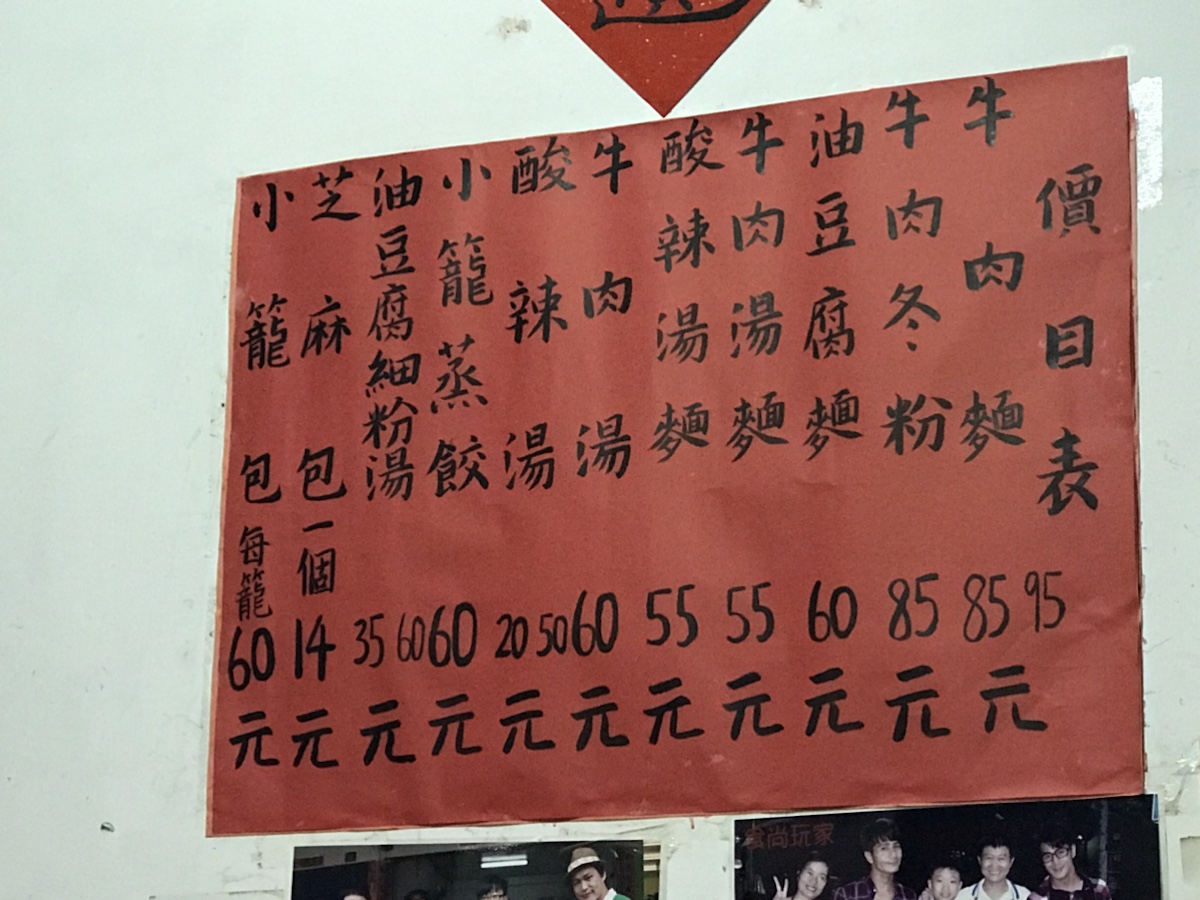 價目表
牛肉麵 85 95元
牛肉冬粉 85元
油豆腐麵 60元
牛肉湯麵 55元
酸辣湯麵 55元
牛肉湯 60元
酸辣湯 20 50元
小籠蒸餃 60元
油豆腐細粉湯 35 60元
芝麻包一個 14元
小籠包每籠 60元
尚玩家